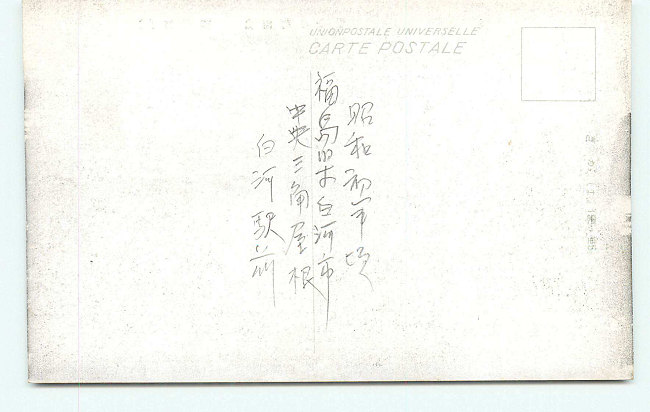 UNIONPOSTALE UNIVERSELLE
CARTE POSTALE
昭和初年頃
福島県白河市
中央三角屋根
白河駅前